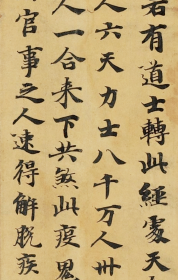 若有道士轉此經處天
人六天力士八千万人卅
人一合来下共煞此疫鬼
官事之人速得解脱疾